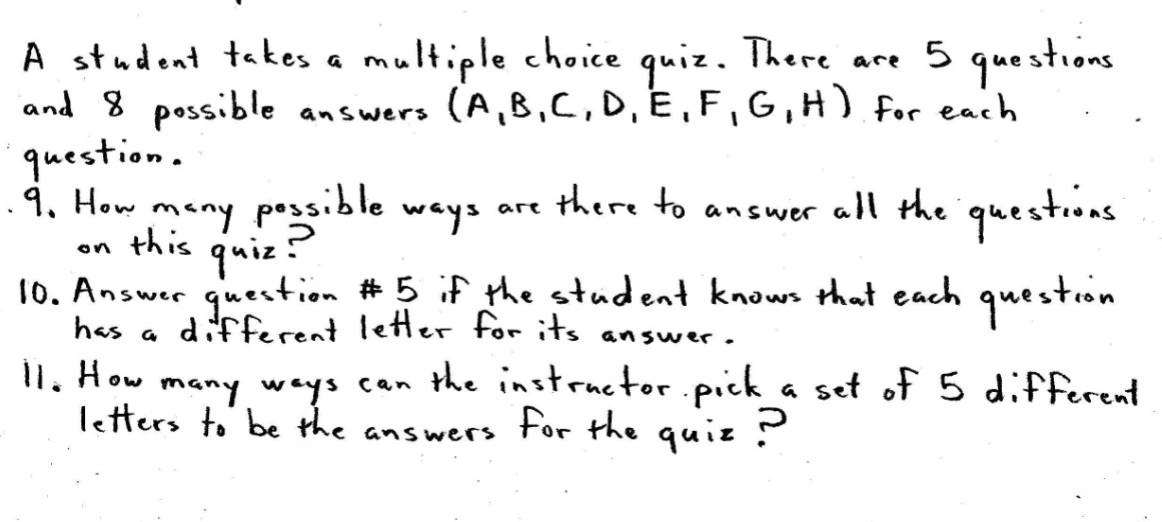 A student takes a multiple choice quiz. There are 5 questions
and 8 possible answers (A,B,C,D,E,F,G,H) for each
question.
9. How many possible ways are there to answer all the questions
on this quiz?
10. Answer question #5 if the student knows that each question
has a different letter for its answer.
11. How many ways can the instructor pick a set of 5 different
letters to be the answers for the quiz?